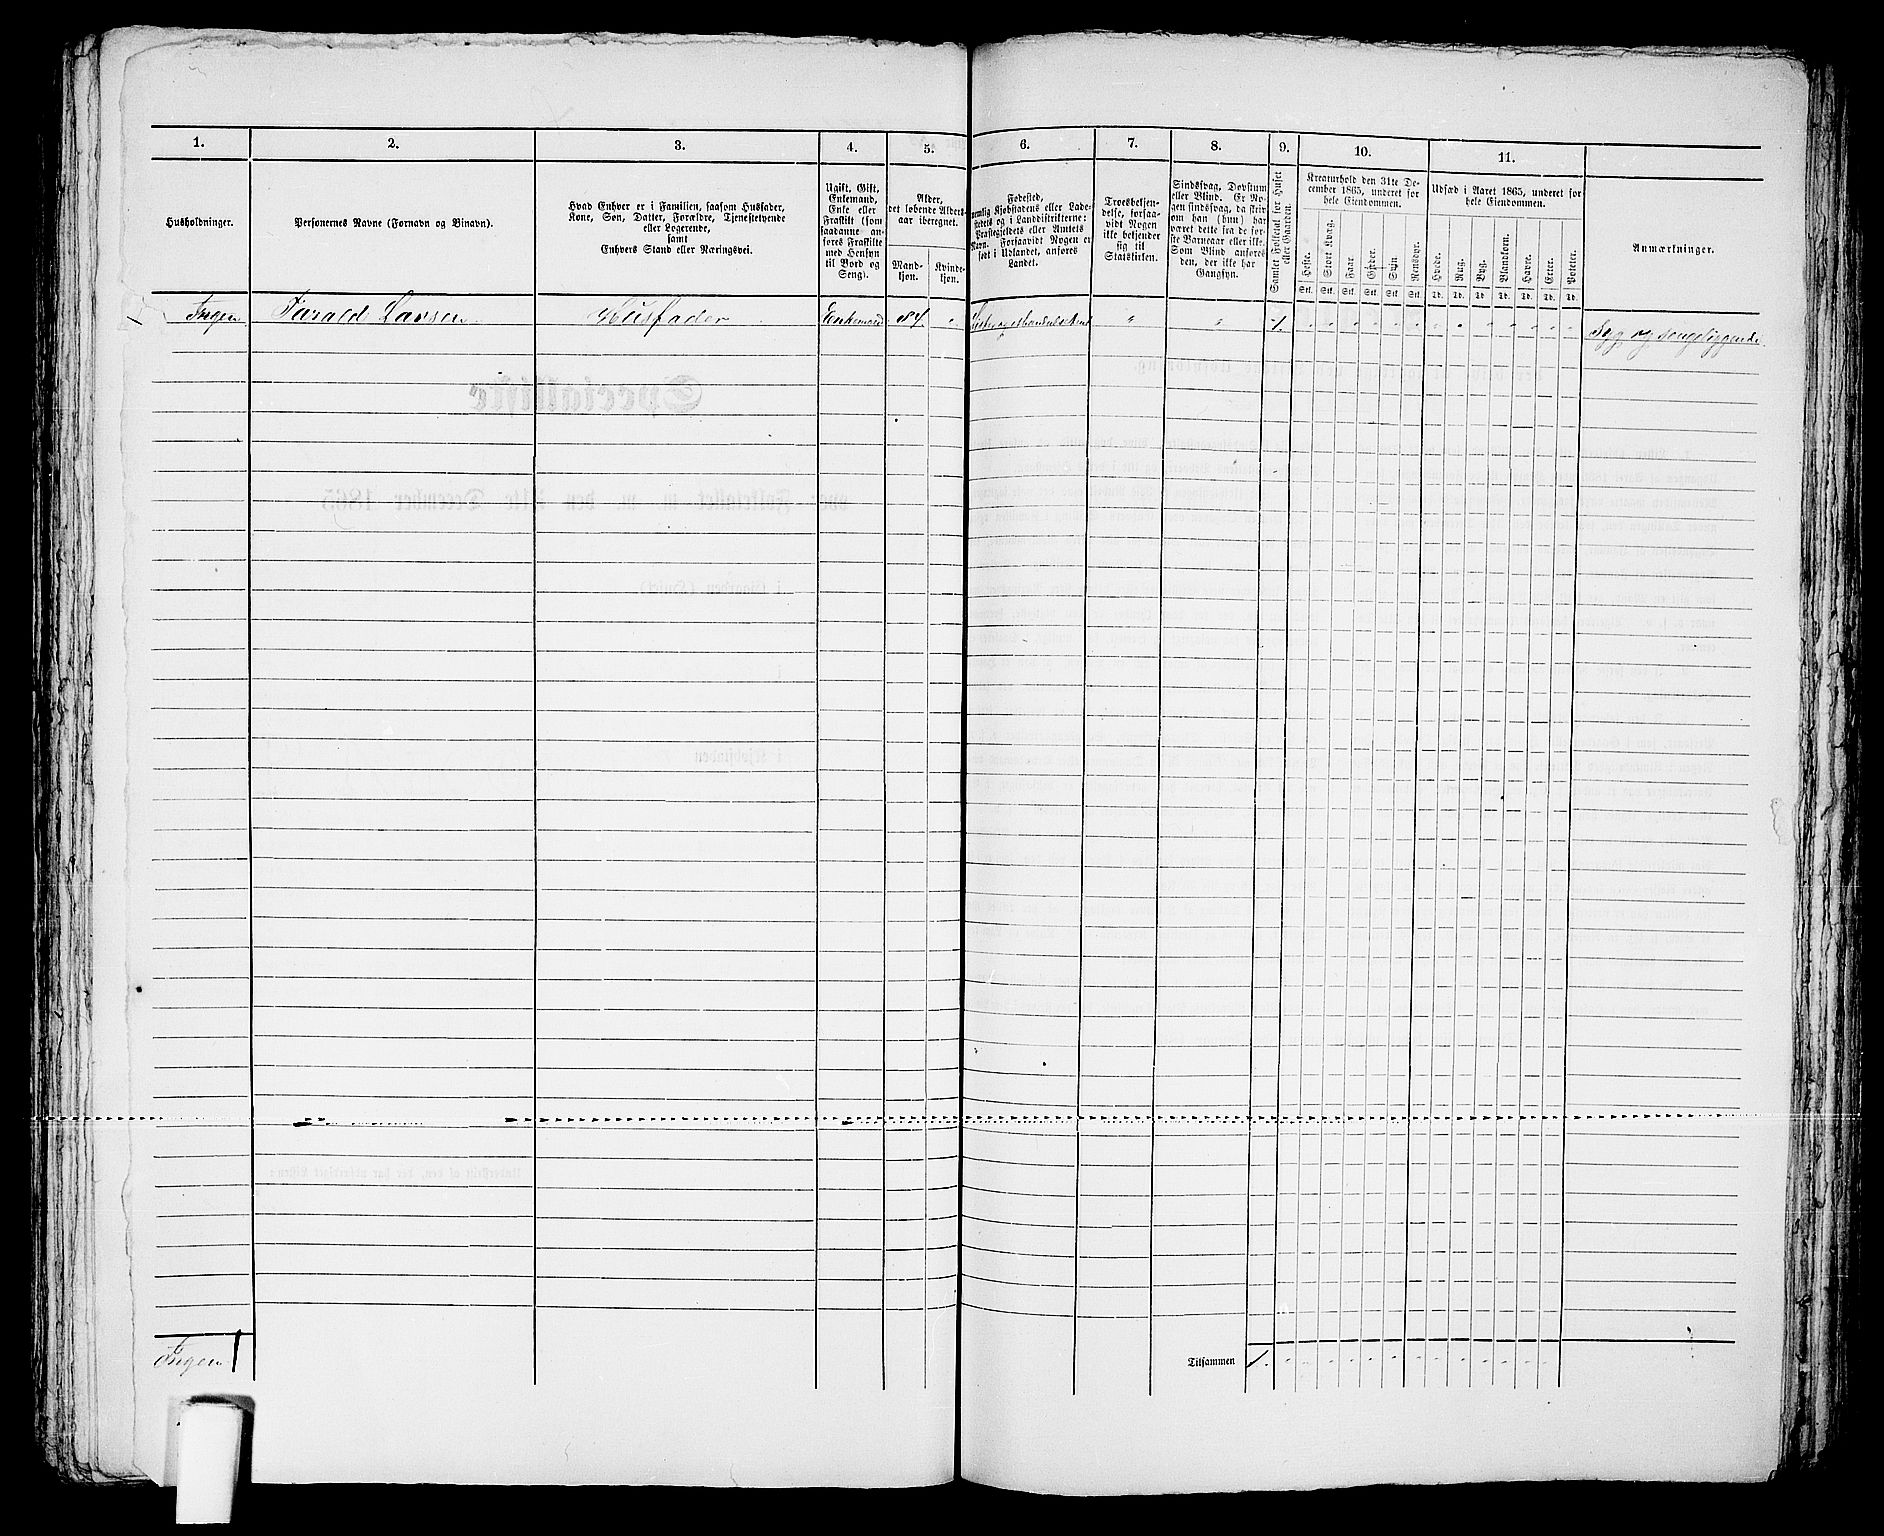 1.
2.
3.
4.
5.
6.
7.
8.
9.
10.
11.
Husholdninger.
Personernes Navne (Fornavn og Binavn).
Hvad Enhver er i Familien, saasom Husfader,
Kone, Søn, Datter, Forældre, Tjenestetyende
eller Logerende,
samt
Enhvers Stand eller Næringsvei.
Ugift, Gift,
Enkemand,
Enke eller
Fraskilt (som
saadanne an-
føres Fraskilte
med Hensyn
til Bord og
Seng).
Alder,
det løbende Alders-
aar iberegnet.
Mand-
kjøn.
Kvinde-
kjøn.
Fødested,
nemlig Kjøbstadens eller Lade-
stedets og i Landdistrikterne:
Præstegjeldets eller Amtets
Navn. Forsaavidt Nogen er
født i Udlandet, anføres
Landet.
Troesbekjen-
delse, forsaa-
vidt Nogen
ikke bekjender
sig til
Statskirken.
Sindssvag, Døvstum
eller Blind. Er No-
gen sindssvag, da skriv
om han (hun) har
været dette fra de før-
ste Barneaar eller ikke.
Som Blind anføres
den, der ikke har
Gangsyn.
Samlet Folketal for Huset
eller Gaarden.
Kreaturhold den 31te De-
cember 1865, underet for
hele Eiendommen.
Heste. Stort Kvæg. Faar. Gjeder. Svin. Rensdyr.
Stk. Stk. Stk. Stk. Stk. Stk.
Udsæd i Aaret 1865, underet for
hele Eiendommen.
Hvede. Rug. Byg. Blandkorn. Havre. Erter. Poteter.
Td. Td. Td. Td. Td. Td. Td.
Anmærkninger.
Ingen Larsen Husfader Enkemand 84. " " " 1. Syg og sengeliggende.
Ingen 1
Tilsammen 1.